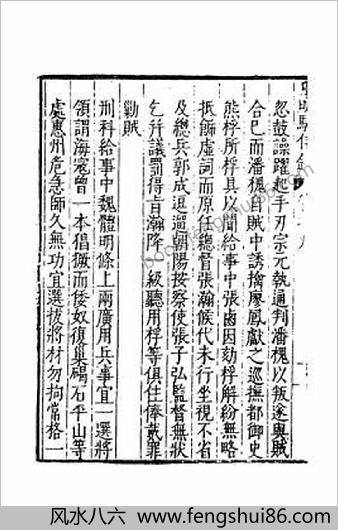 忽鼓譟躍起手刃宗元執通判潘槐以叛遂與賊
合已而潘槐自賊中誘擒廖鳳獻之巡撫都御史
熊桴所桴具以聞給事中張鹵因劾桴解紛無略
抵飾虛詞而原任總督張瀚候代未行坐視不省
及總兵郭成逗遛朝陽按察使張子弘監督無狀
乞并議罰得旨瀚降一級聽用桴等俱住俸戴罪
勦賊
刑科給事中魏體明條上兩廣用兵事宜一選將
領謂海寇曾一本倡獗而倭奴復集碣石平山等
處惠州危急師久無功宜選拔將材勿拘常格一
风水八六 www.fengshui86.com